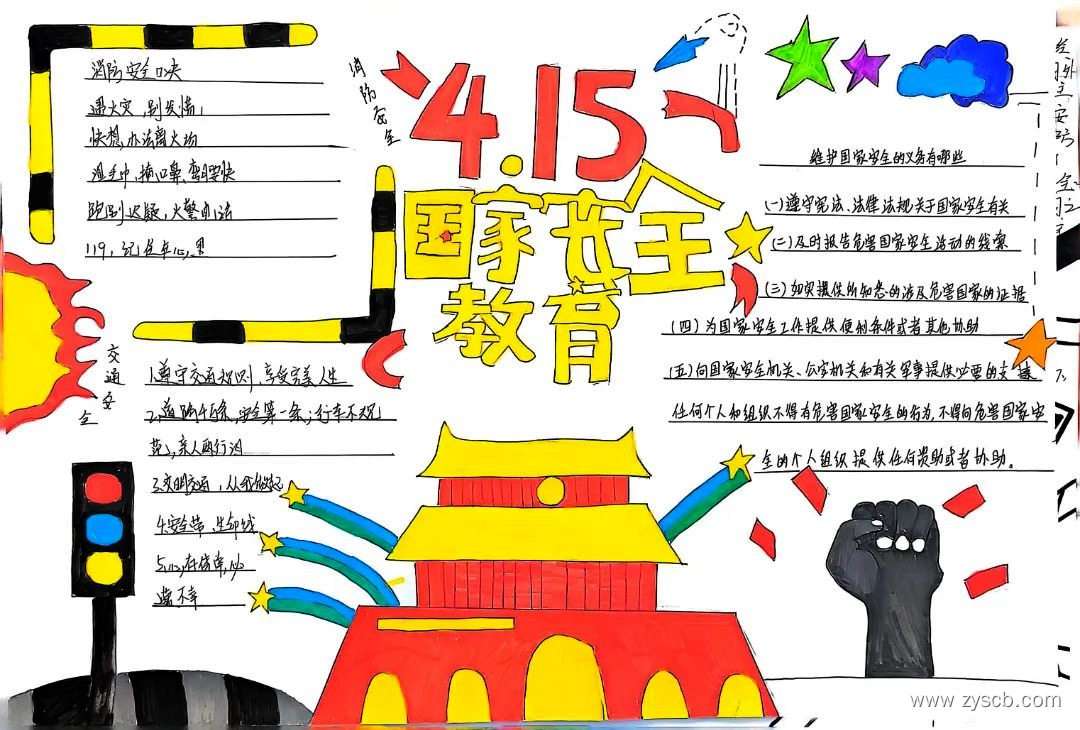 4.15
国家安全
教育
消防安全
消防安全口决
遇火灾,别发慌,
快想,办法离火场
湿毛巾,捂口鼻,弯腰快
跑别迟疑,火警电话
119,记住
交通安全
1.遵守交通规则,享受完美人生
2.道路千万条,安全第一条;行车不规
范,亲人两行泪
3.文明交通,从我做起
4.安全带、生命线
维护国家安全的义务有哪些
(一)遵守宪法、法律法规关于国家安全有关
(二)及时报告危害国家安全活动的线索
(三)如实提供所知悉的涉及危害国家的证据
(四)为国家安全工作提供便利条件或者其他协助
(五)向国家安全机关、公安机关和有关军事提供必要的支援
任何个人和组织不得有危害国家安全的行为,不得向危害国家安
全的个人组织提供任何资助或者协助。
www.zyscb.com